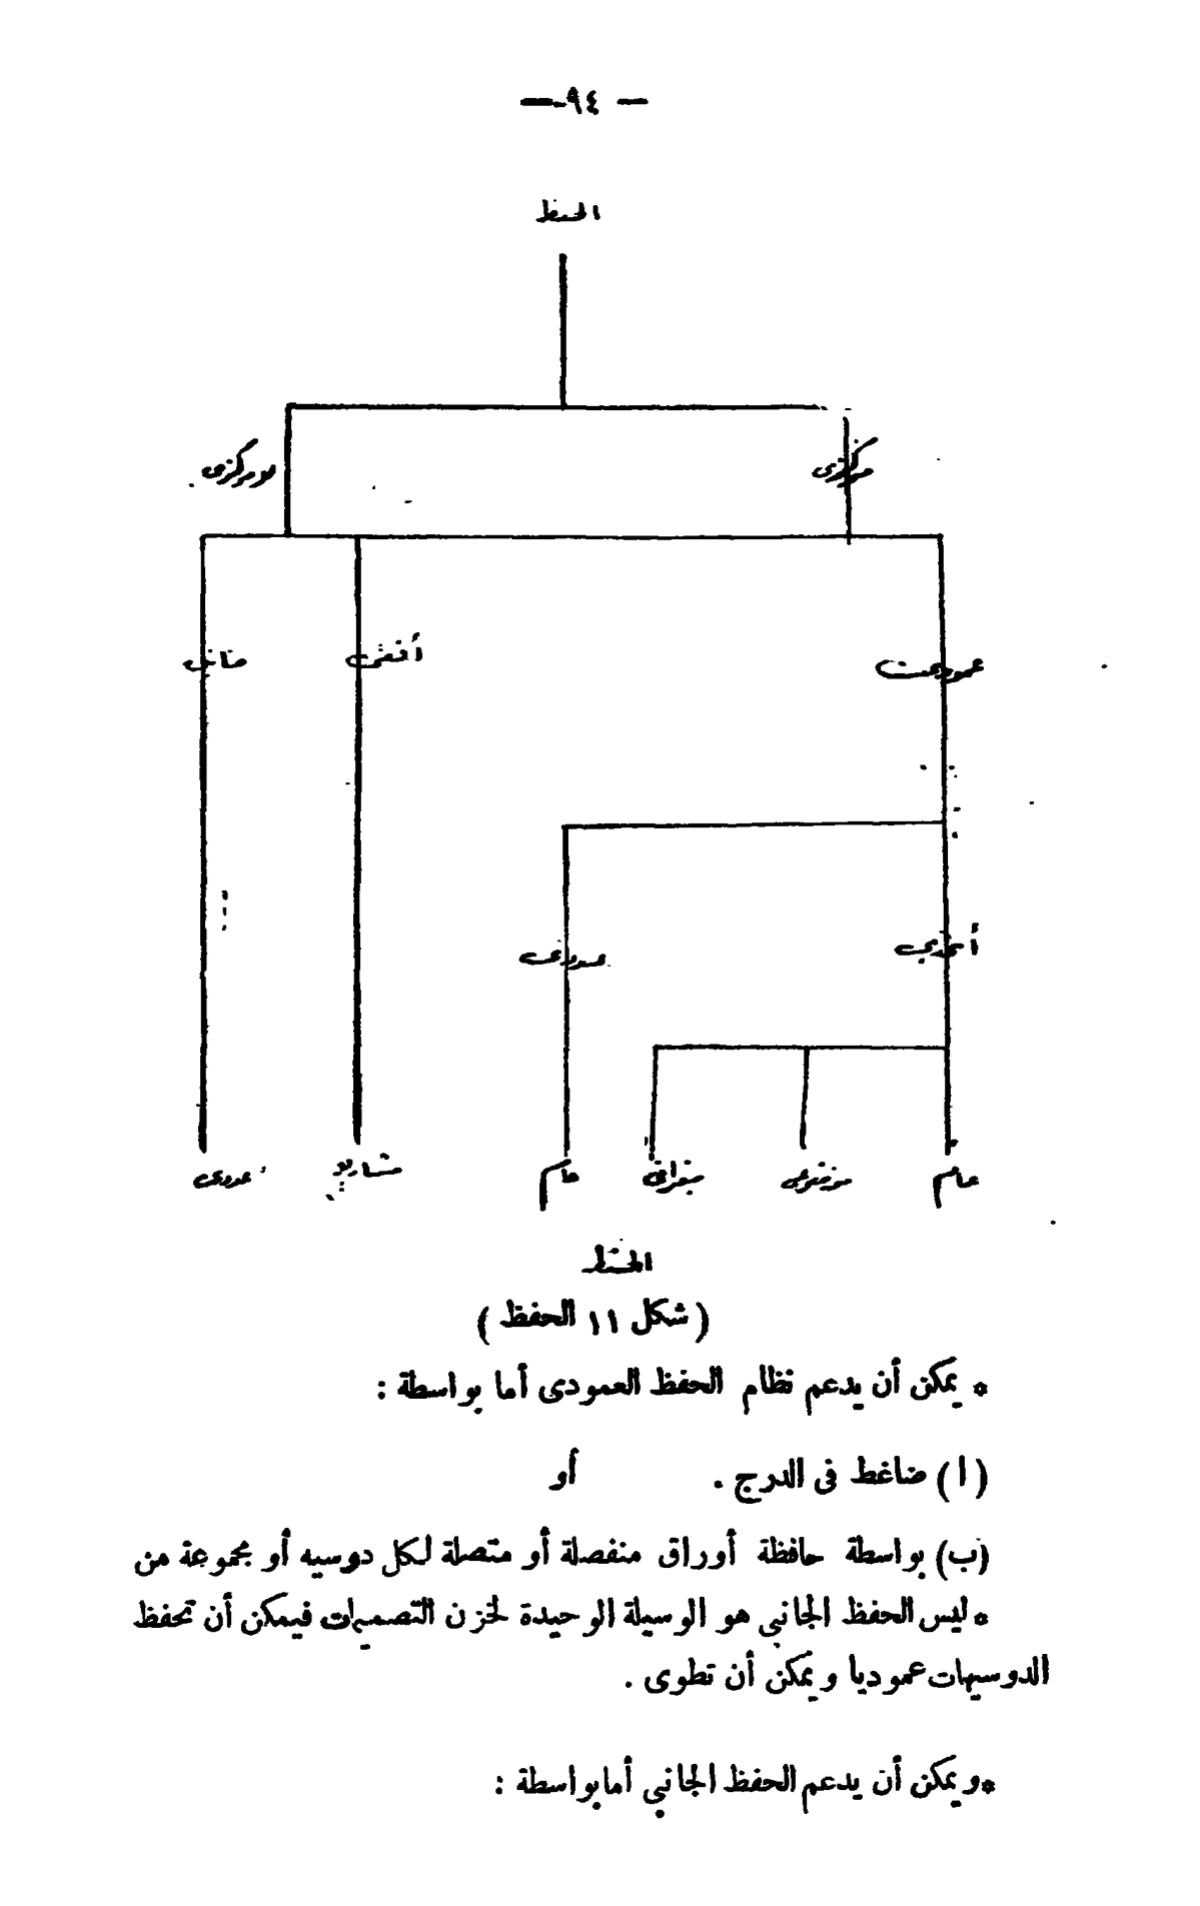 — ٩٤ —
الحفظ
مركزى
لامركزى
عمودى
أفقى
جانبى
أبجدى
عددى
عام
موضوعى
جغرافى
عام
مشاريع
عددى
الحفظ
( شكل ١١ الحفظ )
* يمكن أن يدعم نظام الحفظ العمودى أما بواسطة :
( ا ) ضاغط فى الدرج . أو
(ب) بواسطة حافظة أوراق منفصلة أو متصلة لكل دوسيه أو مجموعة من
* ليس الحفظ الجانبي هو الوسيلة الوحيدة لخزن التصميمات فيمكن أن تحفظ
الدوسيهات عموديا ويمكن أن تطوى .
* ويمكن أن يدعم الحفظ الجانبي أما بواسطة :